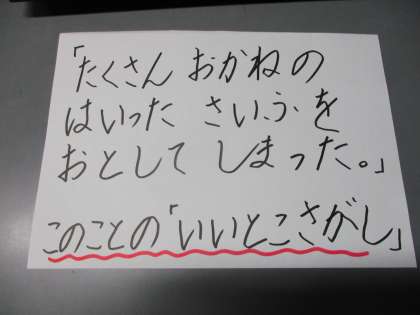 「たくさん おかねの
はいった さいふを
おとして しまった。」
このことの「いいとこさがし」